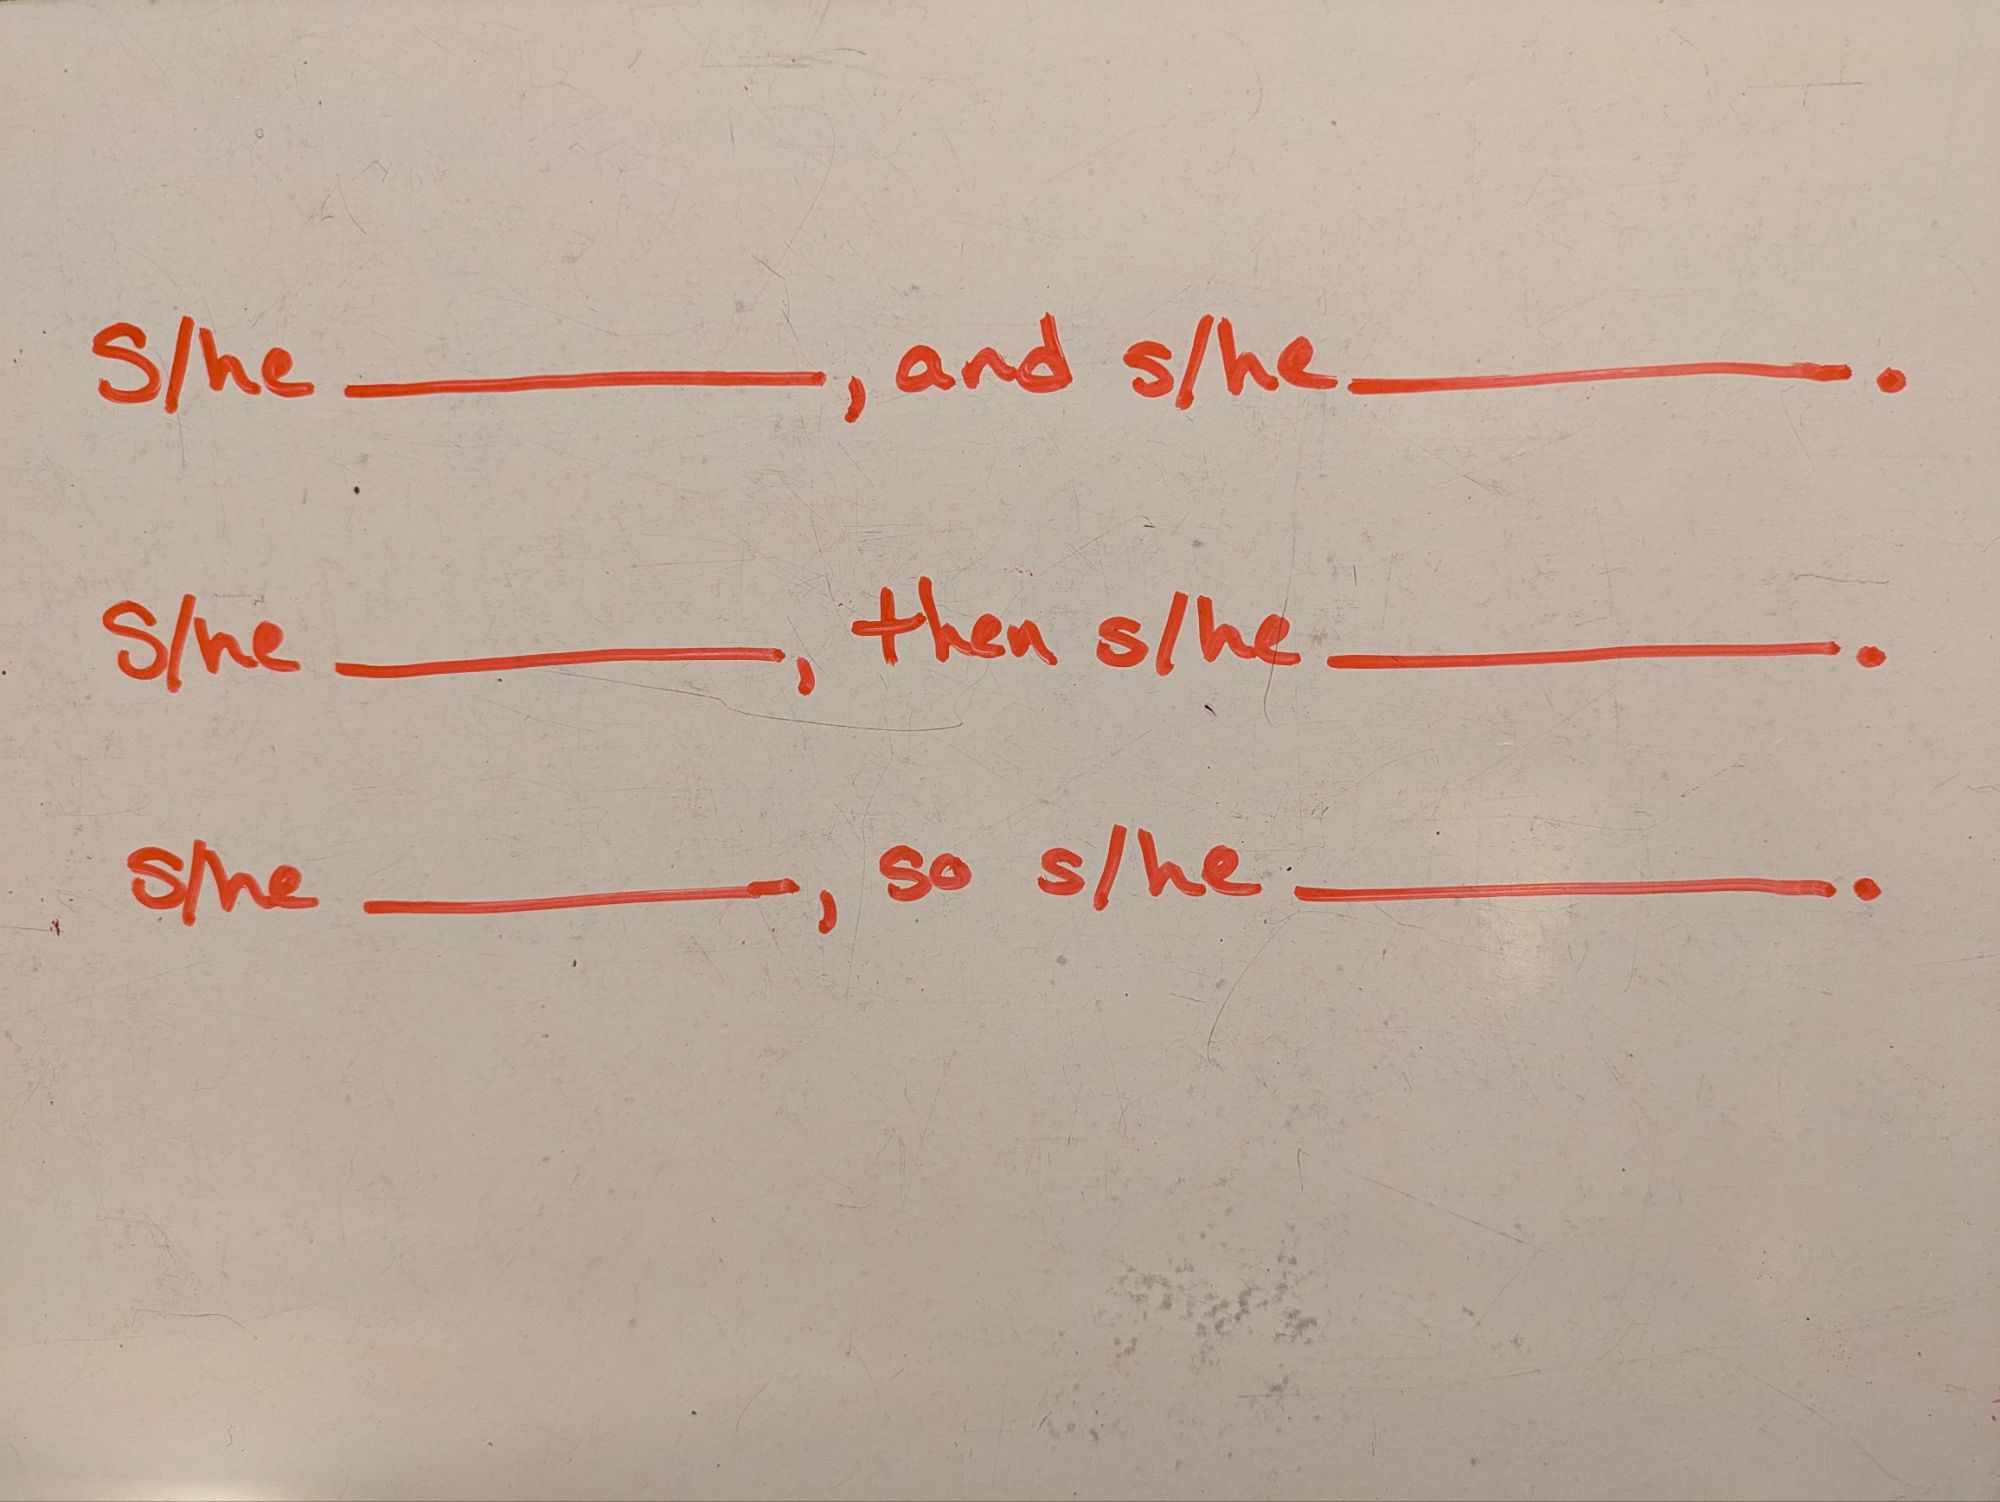 S/he __________, and s/he __________.
S/he __________, then s/he __________.
s/he __________, so s/he __________.